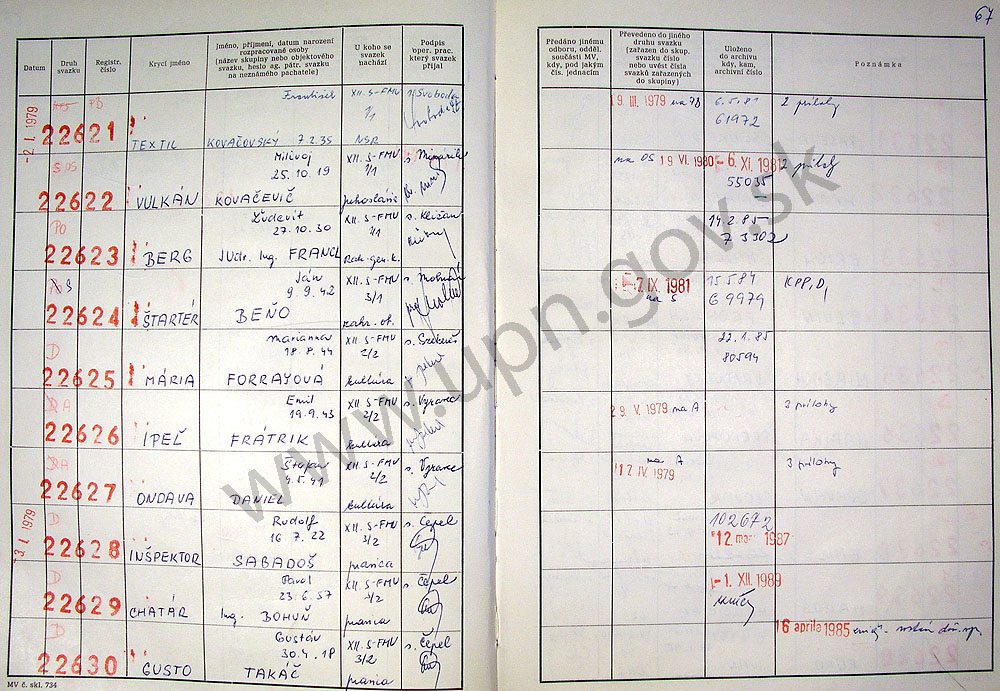 67
Datum
Druh svazku
Registr. číslo
Krycí jméno
Jméno, příjmení, datum narození rozpracované osoby (název skupiny nebo objektového svazku, heslo ag. pátr. svazku na neznámého pachatele)
U koho se svazek nachází
Podpis oper. prac. který svazek přijal
Předáno jinému odboru, odděl. součásti MV, kdy, pod jakým čís. jednacím
Převedeno do jiného druhu svazku (zařazen do skup. svazku číslo nebo uvést čísla svazků zařazených do skupiny)
Uloženo do archivu kdy, kam, archivní číslo
Poznámka
-2 I. 1979
PB
František XII. S-FMV s. Svoboda 19. III. 1979 na PB 6.5.81 2 prílohy
1/1 61972
22621 TEXTIL KOVAČOVSKÝ 7.2.35 NSR
OS Milivoj XII. S-FMV na OS 19 VI. 1980 -6. XI. 1981 2 prílohy
25.10.19 1/1 55035
22622 VULKÁN KOVAČEVIČ
PO Ľudevít XII. S-FMV s. Kližan 14.2.85
27.10.30 1/1 73302
22623 BERG JUDr. Ing. FRANCL Rak. gen. k.
S Ján XII. S-FMV 7 IX. 1981 15.5.84 KPP, D1
9.9.42 3/1 na S 69979
22624 ŠTARTÉR BEŇO zahr. ot.
D Marianna XII. S-FMV 22.1.85
18.8.44 2/2 80594
22625 MÁRIA FORRAYOVÁ kultúra
A Emil XII. S-FMV s. Vyranc 29. V. 1979 na A 3 prílohy
19.9.43 2/2
22626 IPEĽ FRÁTRIK kultúra
A Štefan XII. S-FMV s. Vyranc na A 3 prílohy
4.5.41 2/2 12 IV. 1979
22627 ONDAVA DANIEL kultúra
-3 I. 1979
D Rudolf XII. S-FMV s. Čepel 102672
16.7.22 3/2 12. mar. 1987
22628 INŠPEKTOR SABADOŠ
D Pavol XII. S-FMV s. Čepel -1. XII. 1989
23.6.37 3/2
22629 CHATÁR Ing. BOHUŇ
D Gustáv XII. S-FMV s. Čepel 16 apríla 1985
30.4.18 3/2
22630 GUSTO TAKÁČ
MV č. skl. 734
www.upn.gov.sk